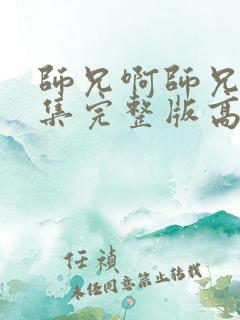 師兄啊師兄
集完整版高
任禎
未任同意禁止转载